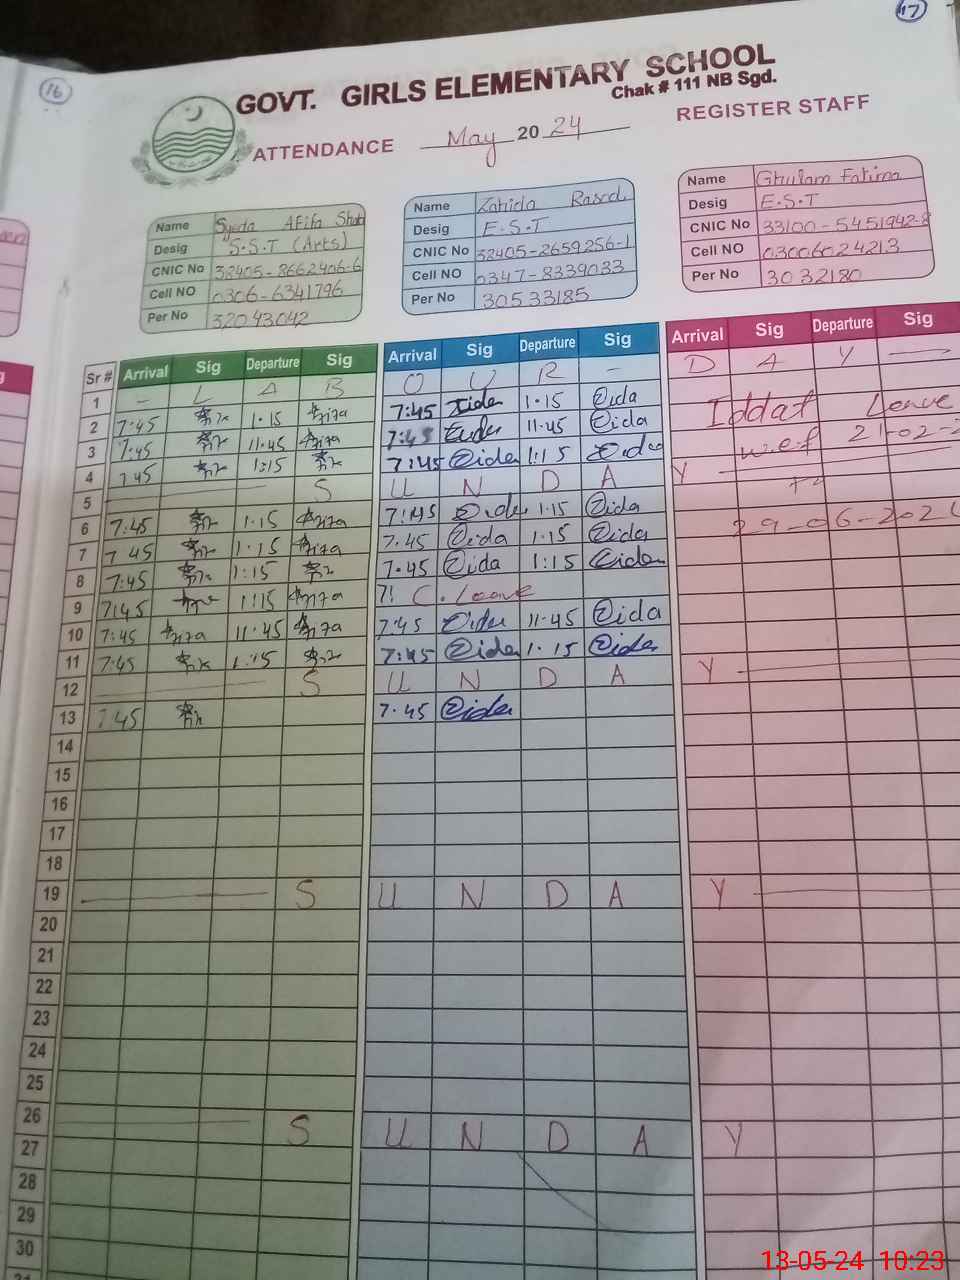 16
17
GOVT. GIRLS ELEMENTARY SCHOOL
Chak # 111 NB Sgd.
ATTENDANCE May 2024 REGISTER STAFF
Name Syeda Afifa Shah
Desig S.S.T (Arts)
CNIC No 38405-8662406-6
Cell NO 0306-6341796
Per No 32043042
Name Zahida Rasool
Desig E.S.T
CNIC No 38405-2659256-1
Cell NO 0347-8339033
Per No 30533185
Name Ghulam Fatima
Desig E.S.T
CNIC No 33100-5451942-8
Cell NO 03006024213
Per No 3032180
Sr # Arrival Sig Departure Sig Arrival Sig Departure Sig Arrival Sig Departure Sig
1 - L A B O U R - D A Y -
2 7:45 1.15 7:45 1.15 Iddat Leave
3 7:45 11.45 7:45 11.45 w.e.f 21-02-2
4 7 45 1:15 7:45 1:15
5 S U N D A Y
6 7:45 1.15 7:45 1.15 29-06-202
7 7 45 1.15 7.45 1:15
8 7:45 1:15 7.45 1:15
9 7:45 1:15 7! C. Leave
10 7:45 11.45 7:45 11.45
11 7:45 1:15 7:45 1.15
12 S U N D A Y
13 7 45 7.45
14
15
16
17
18
19 S U N D A Y
20
21
22
23
24
25
26 S U N D A Y
27
28
29
30
31
13-05-24 10:23